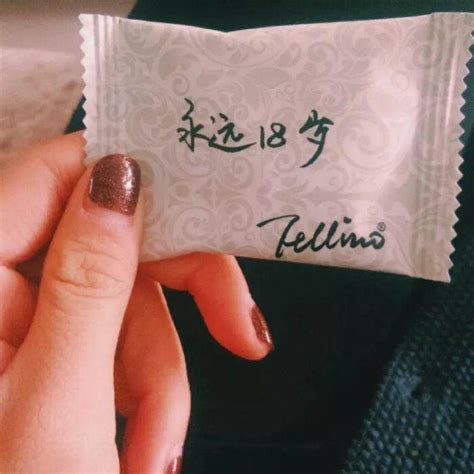 永远18岁
Tellino®